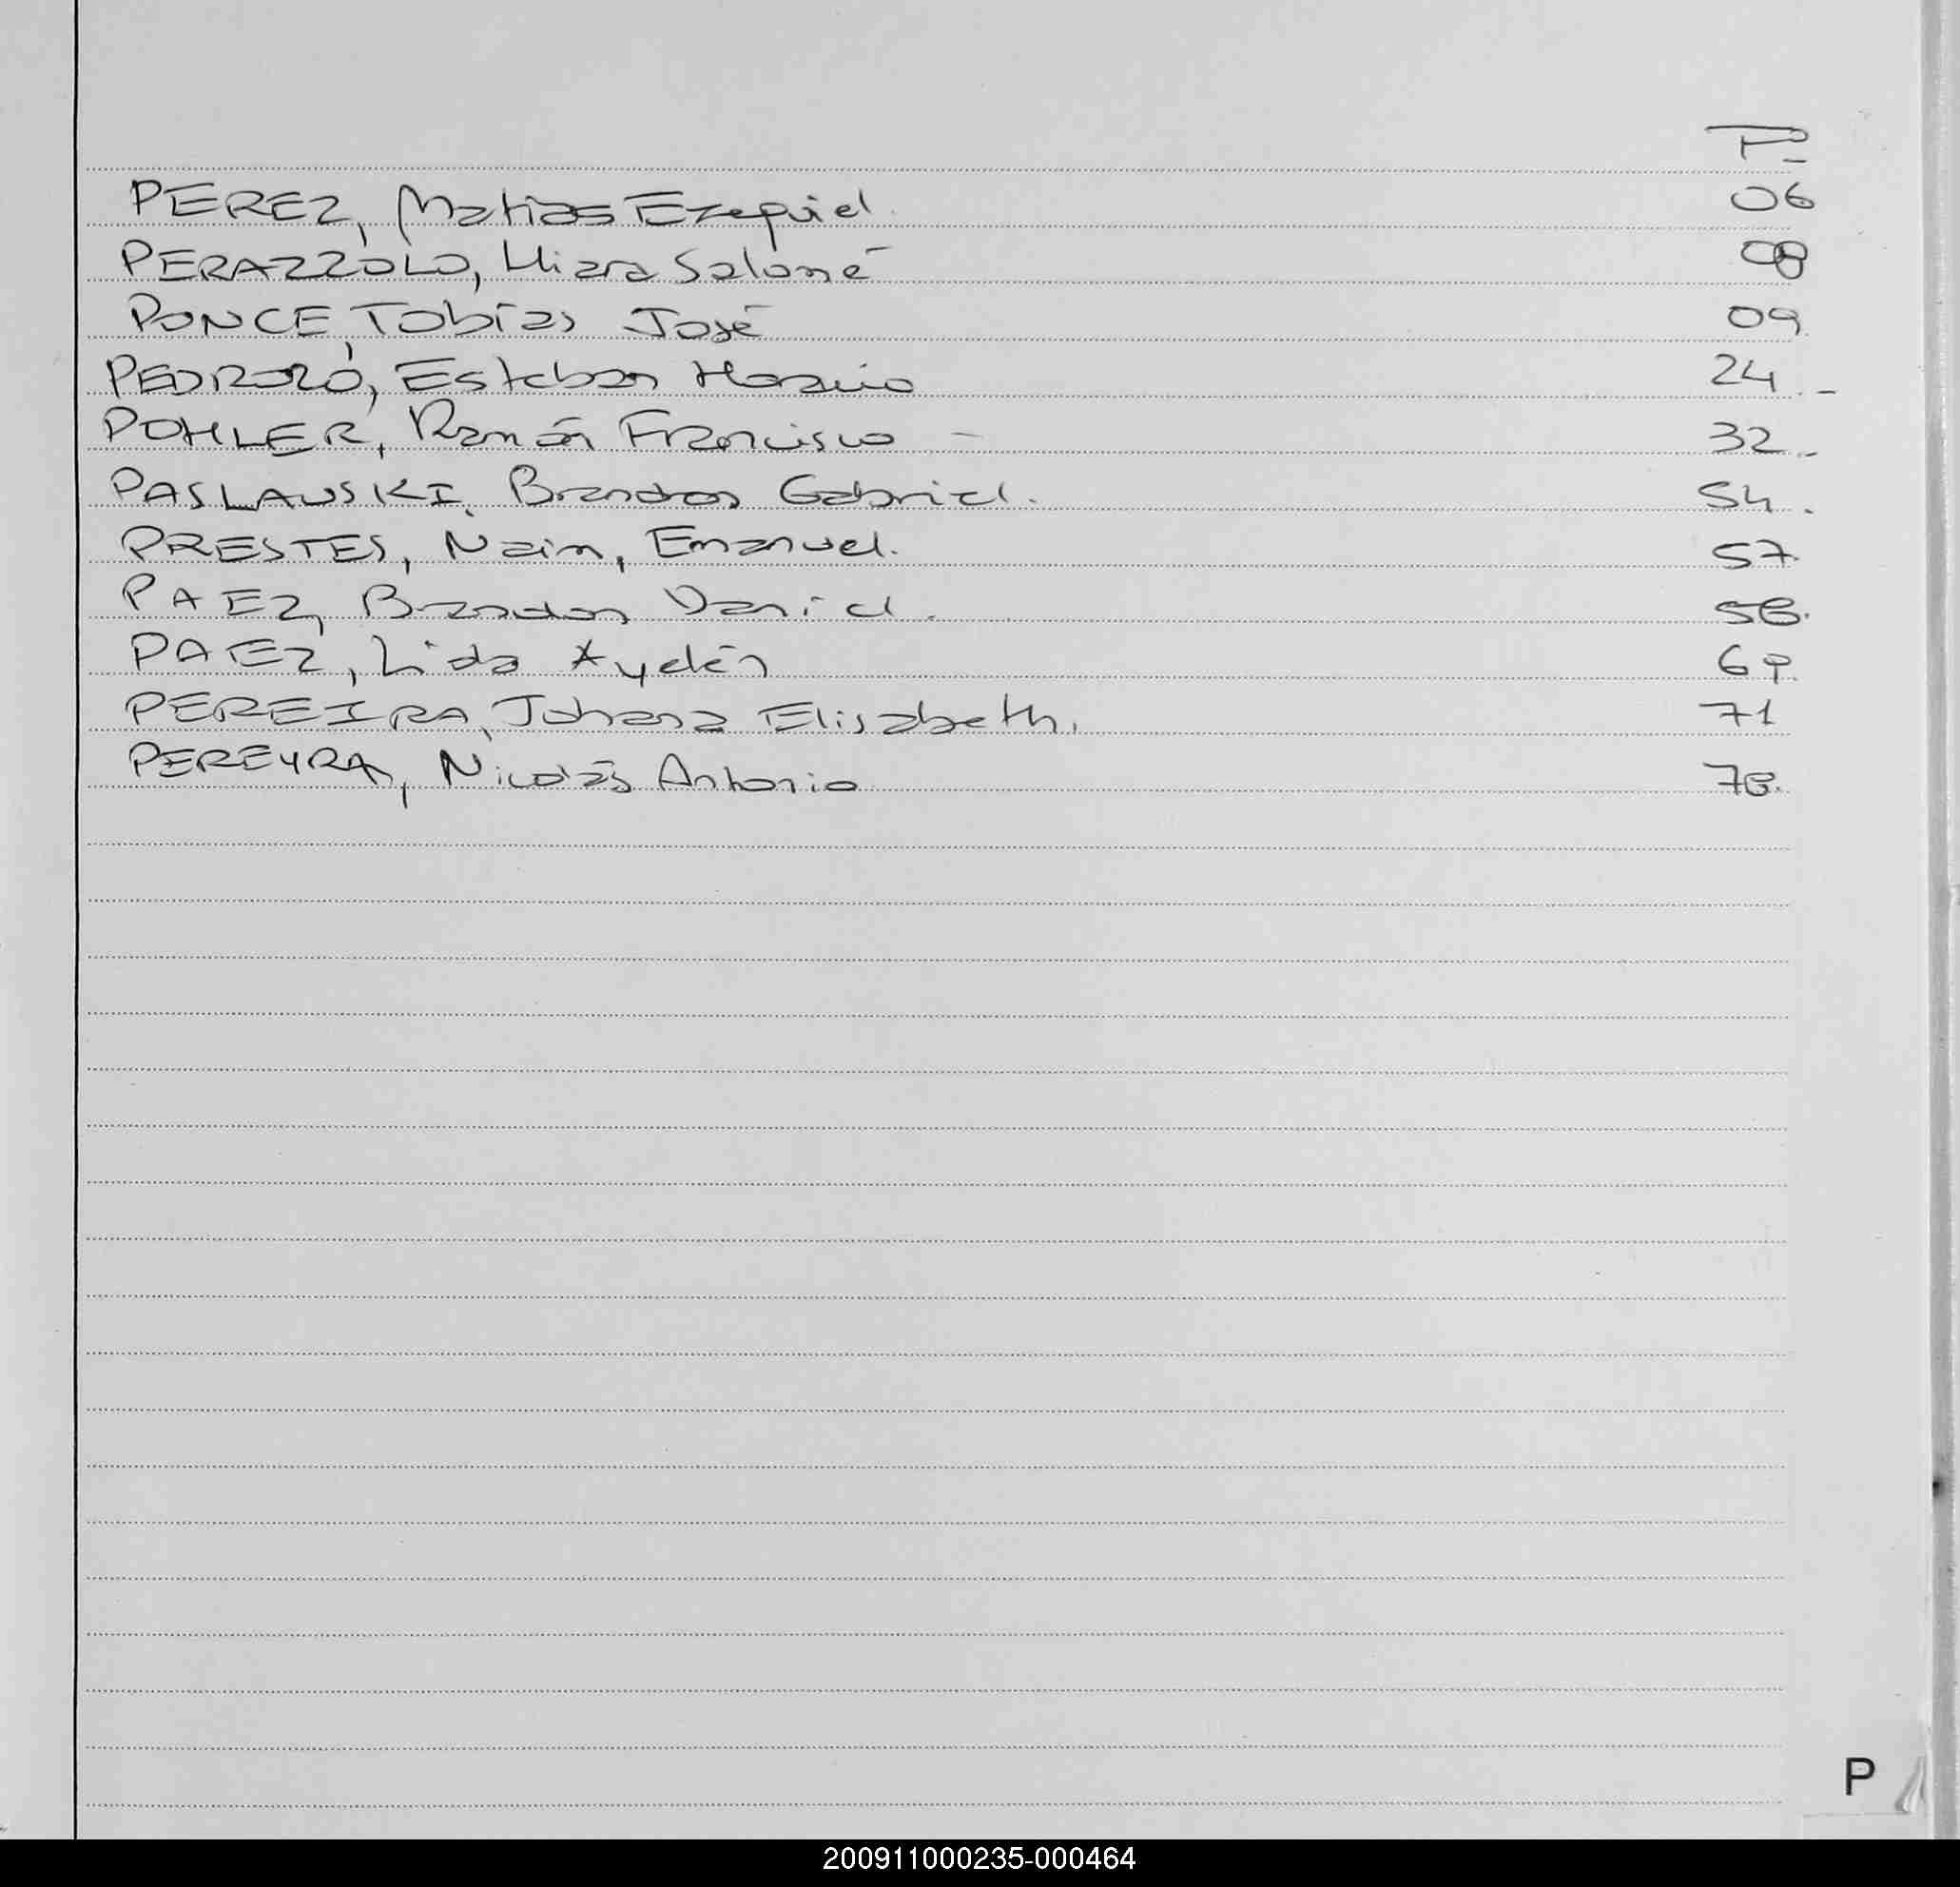 Fº
PEREZ, Matias Ezequiel. 06
PERAZZOLO, Miara Salomé 08
PONCE, Tobías José 09
PEDROZO, Esteban Horacio 24.-
POHLER, Ramón Francisco - 32.-
PASLAWSKI, Brandon Gabriel. 54.
PRESTES, Naim, Emanuel. 57.
PAEZ, Brandon Daniel. 58.
PAEZ, Lida Ayelén 69.
PEREIRA, Johana Elisabeth. 71
PEREYRA, Nicolás Antonio 78.
P
200911000235-000464